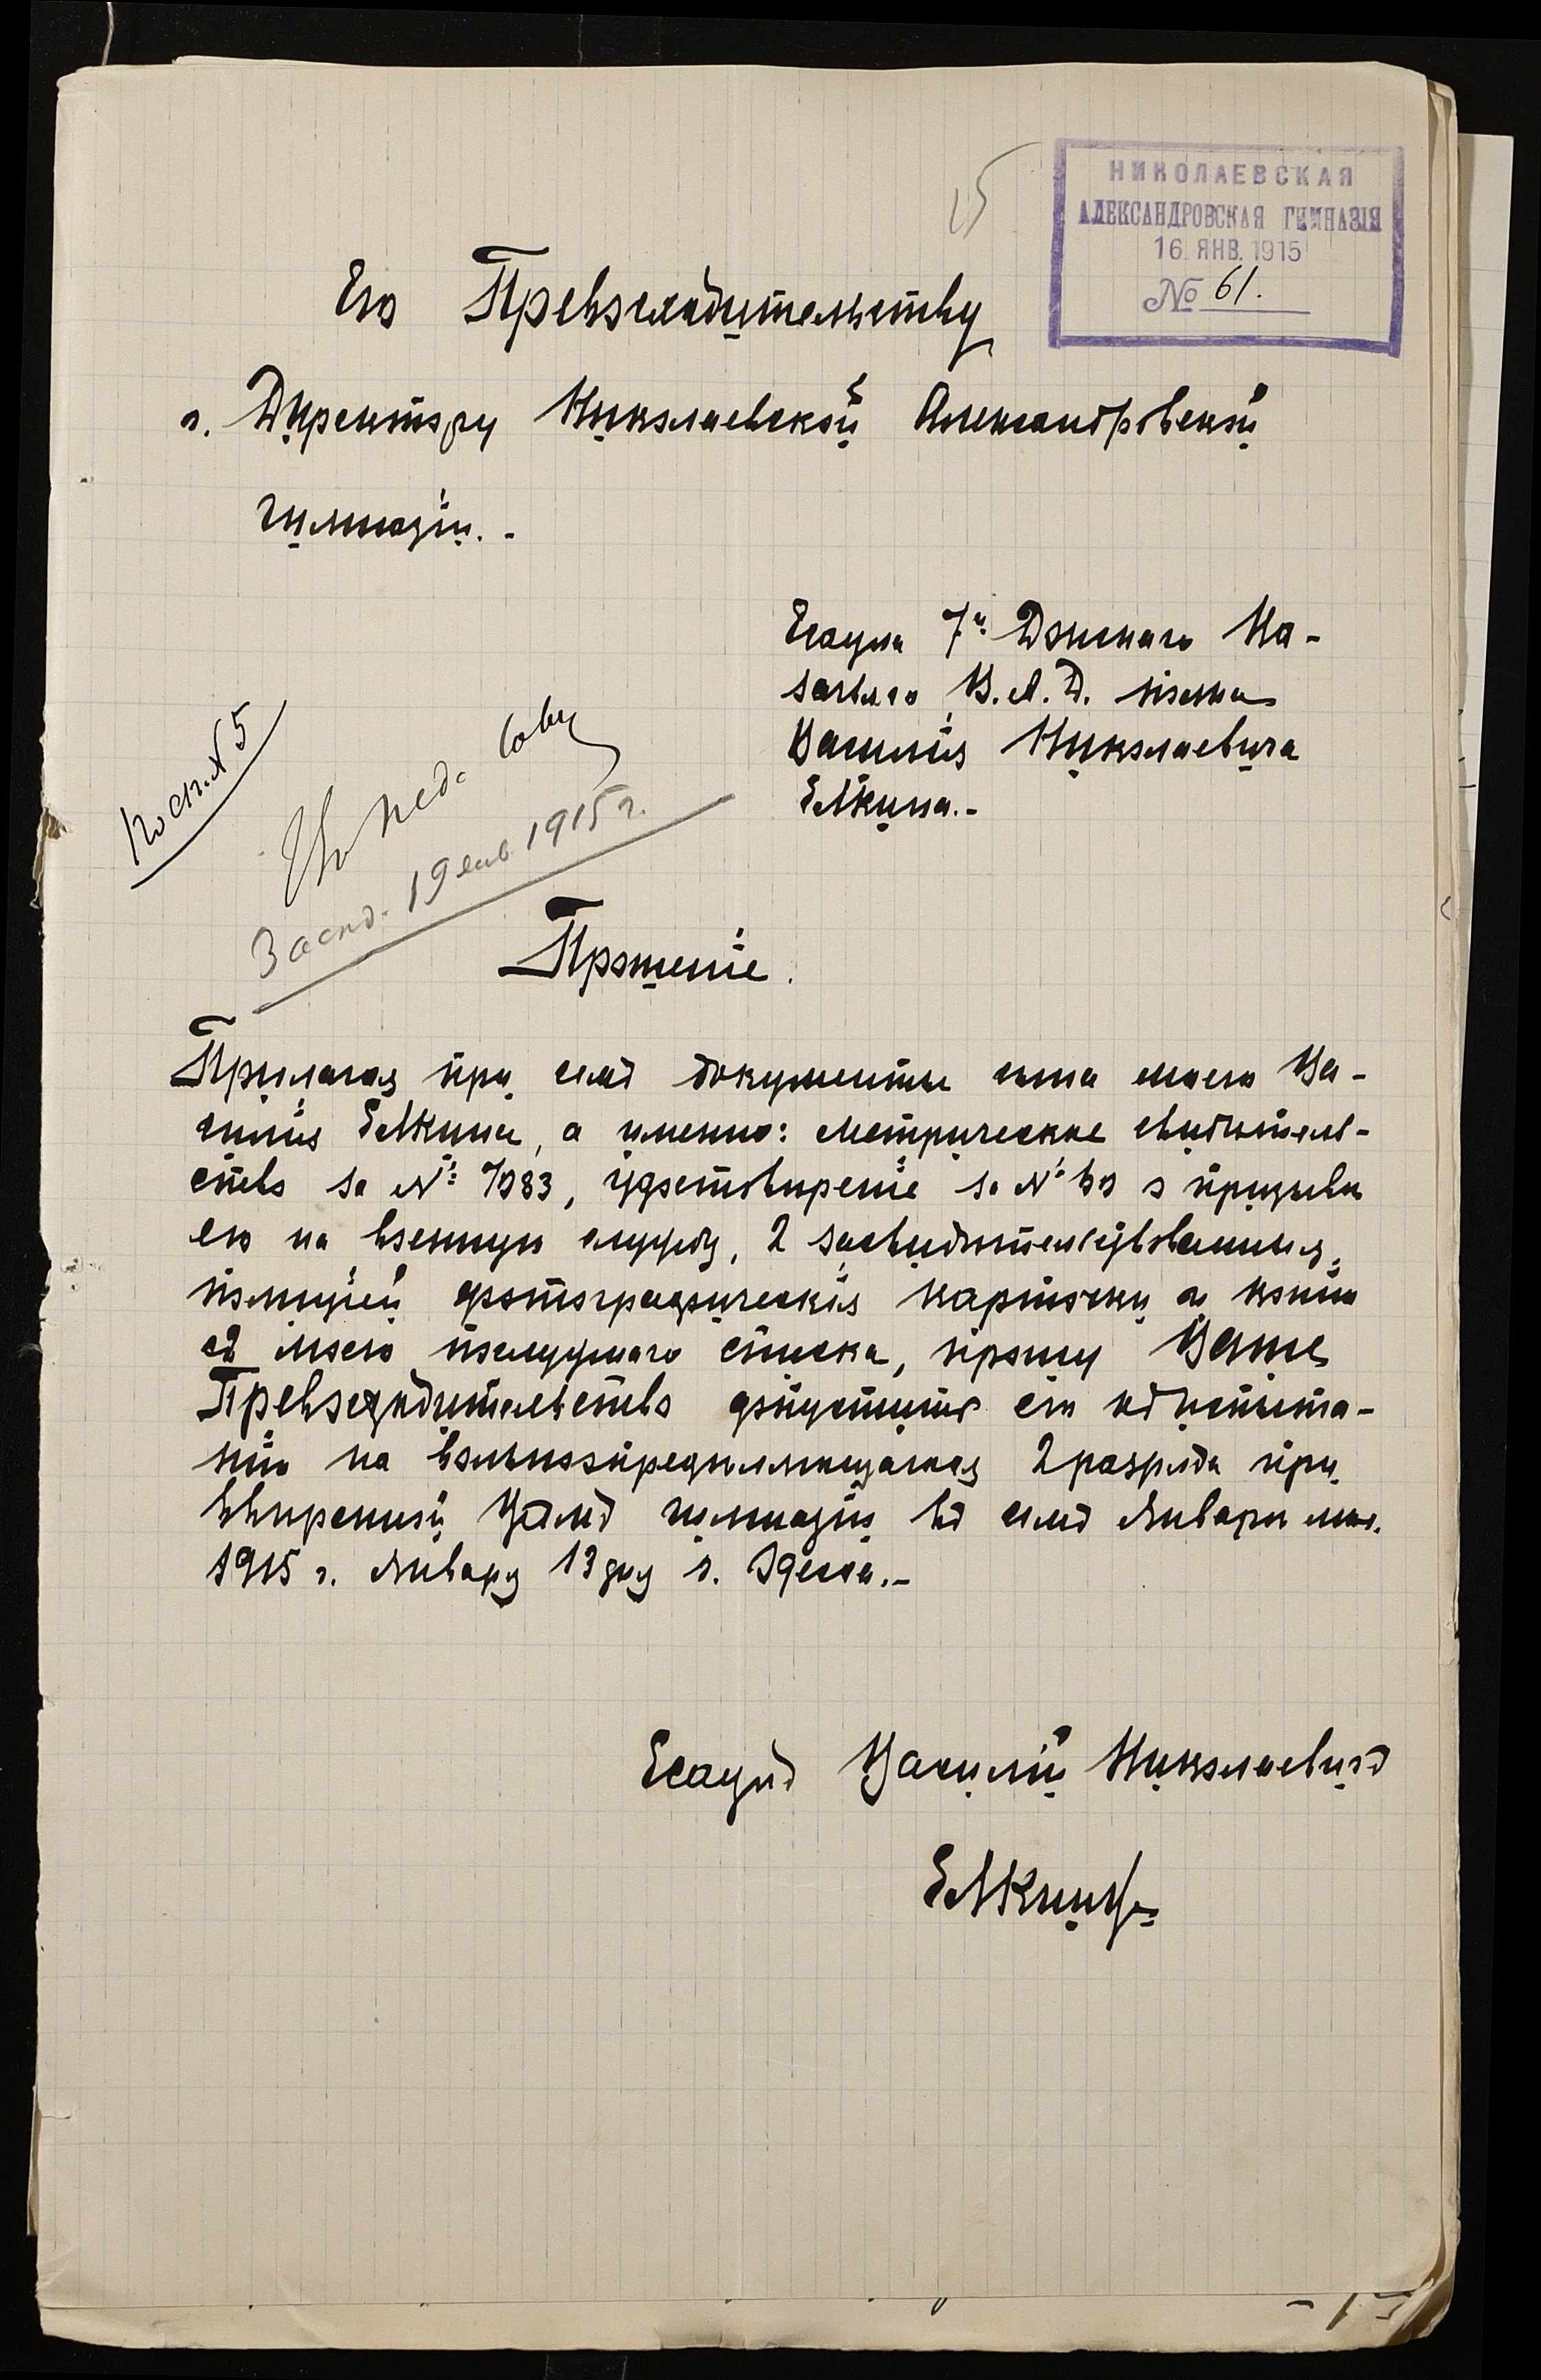 НИКОЛАЕВСКАЯ
АЛЕКСАНДРОВСКАЯ ГИМНАЗІЯ
16 ЯНВ. 1915
№ 61.
Его Превосходительству
г. Директору Николаевской Александровской
гимназіи.-
Есаула 7го Донского Ка-
зачьяго В.А.Д. полка
Василія Николаевича
Елкина.-
Въ пед. совѣ
Засѣд. 19 янв. 1915 г.
Прошеніе.
Прилагая при семъ документы сына моего Ва-
силія Елкина, а именно: метрическое свидѣтель-
ство за №, удостовѣреніе за № о призывѣ
его на военную службу, 2 засвидѣтельствованныя
полиціей фотографическія карточки и копію
съ моего послужнаго списка, прошу Ваше
Превосходительство допустить его къ испыта-
нію на вольноопредѣляющагося 2 разряда при
ввѣренной Вамъ гимназіи въ семъ Январѣ мѣс.
1915 г. Января 13 дня г. Одесса.-
Есаулъ Василій Николаевичъ
Елкинъ